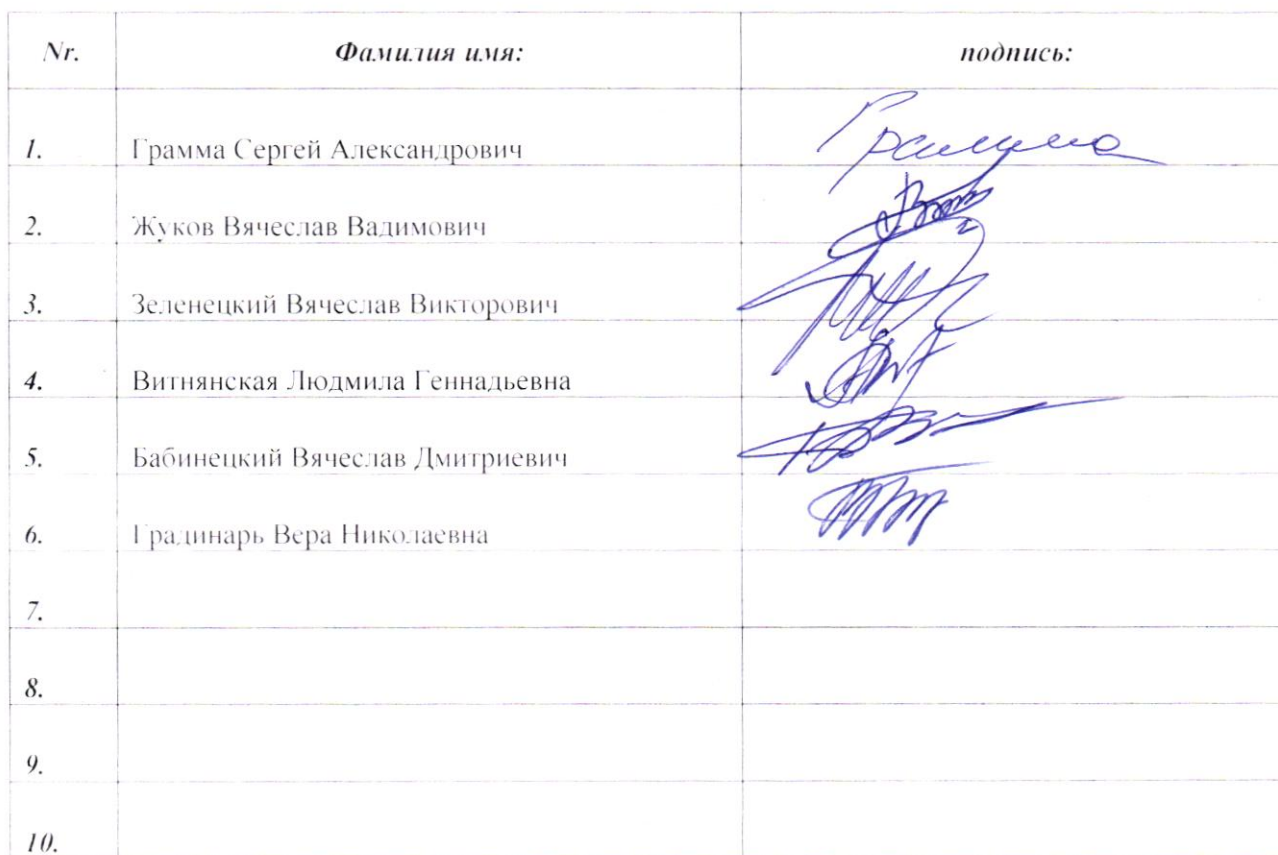 Nr. Фамилия имя: подпись:
1. Грамма Сергей Александрович Грамма
2. Жуков Вячеслав Вадимович
3. Зеленецкий Вячеслав Викторович
4. Витнянская Людмила Геннадьевна
5. Бабинецкий Вячеслав Дмитриевич
6. Градинарь Вера Николаевна
7.
8.
9.
10.